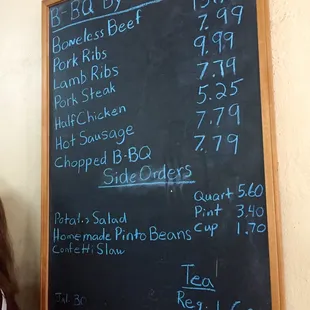 B-BQ By
Boneless Beef
Pork Ribs 7.99
Lamb Ribs 9.99
Pork Steak 7.79
Half Chicken 5.25
Hot Sausage 7.79
Chopped B-BQ 7.79
Side Orders
Quart 5.60
Potato Salad Pint 3.40
Homemade Pinto Beans Cup 1.70
Confetti Slaw
Tea
Reg.